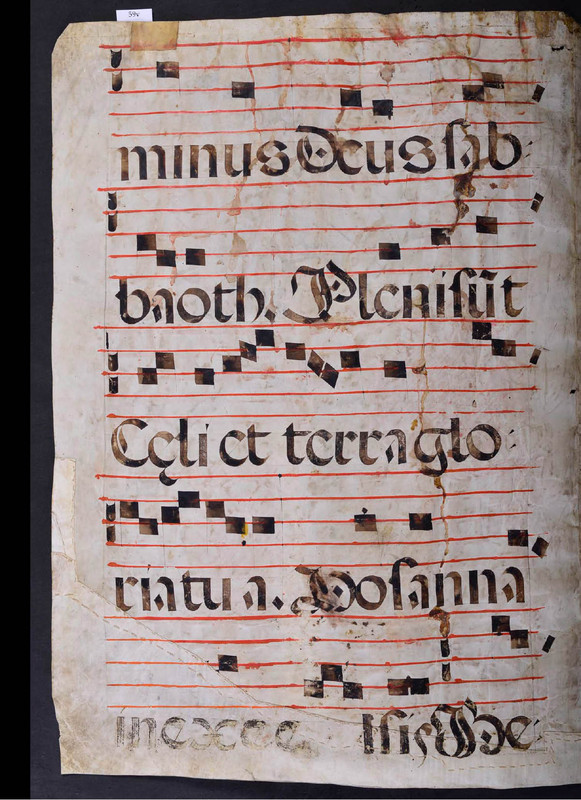 39v
minus Deus sab
baoth. Pleni sūt
Cęli et terra glo
ria tu a. Hosanna
in exce lsis. Be